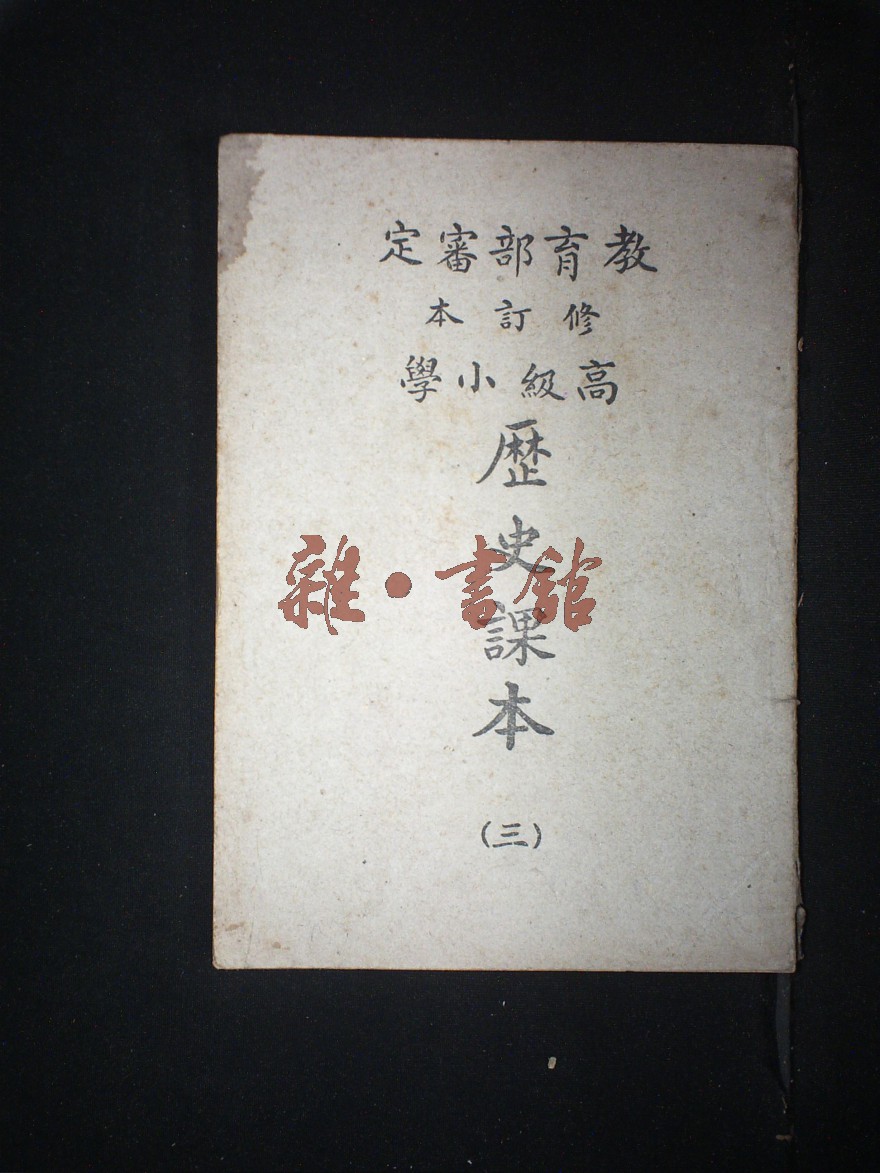 教育部審定
修訂本
高級小學
歷史課本
(三)
雜·書館